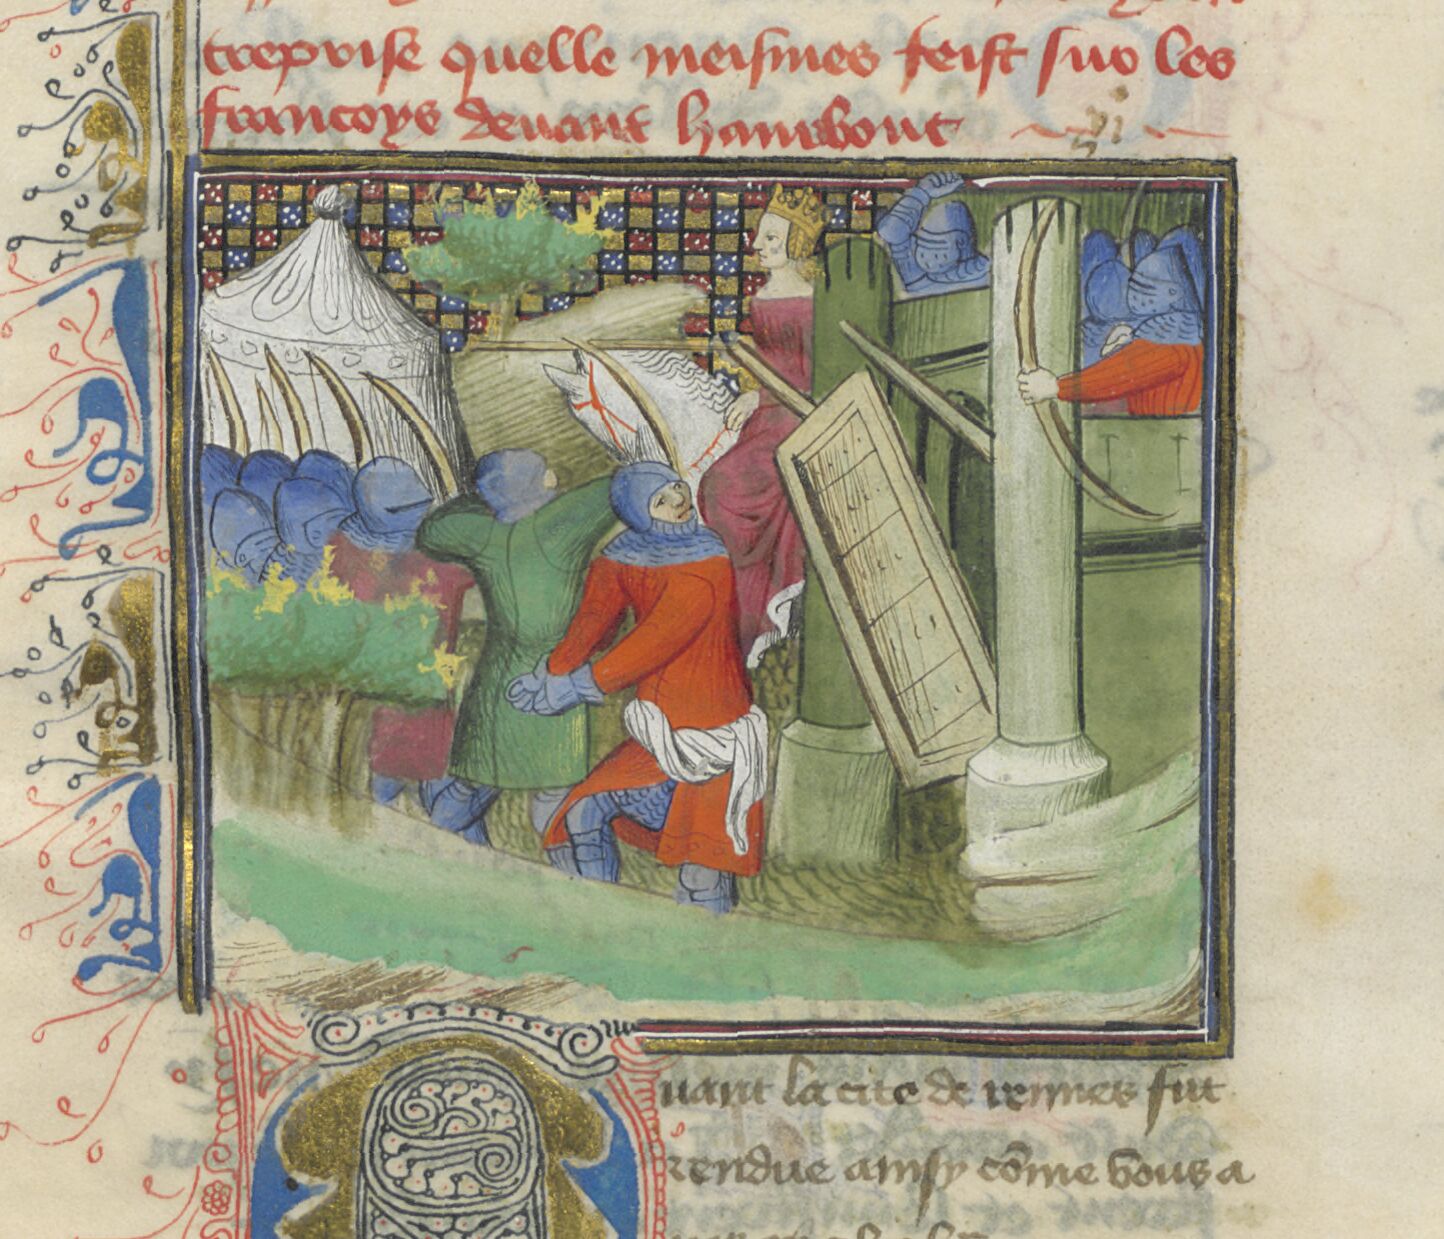 treprise quelle meismes feist sur les
francoys devant hambout
uant la cite de rennes fut
rendue ainsy cõme vous a